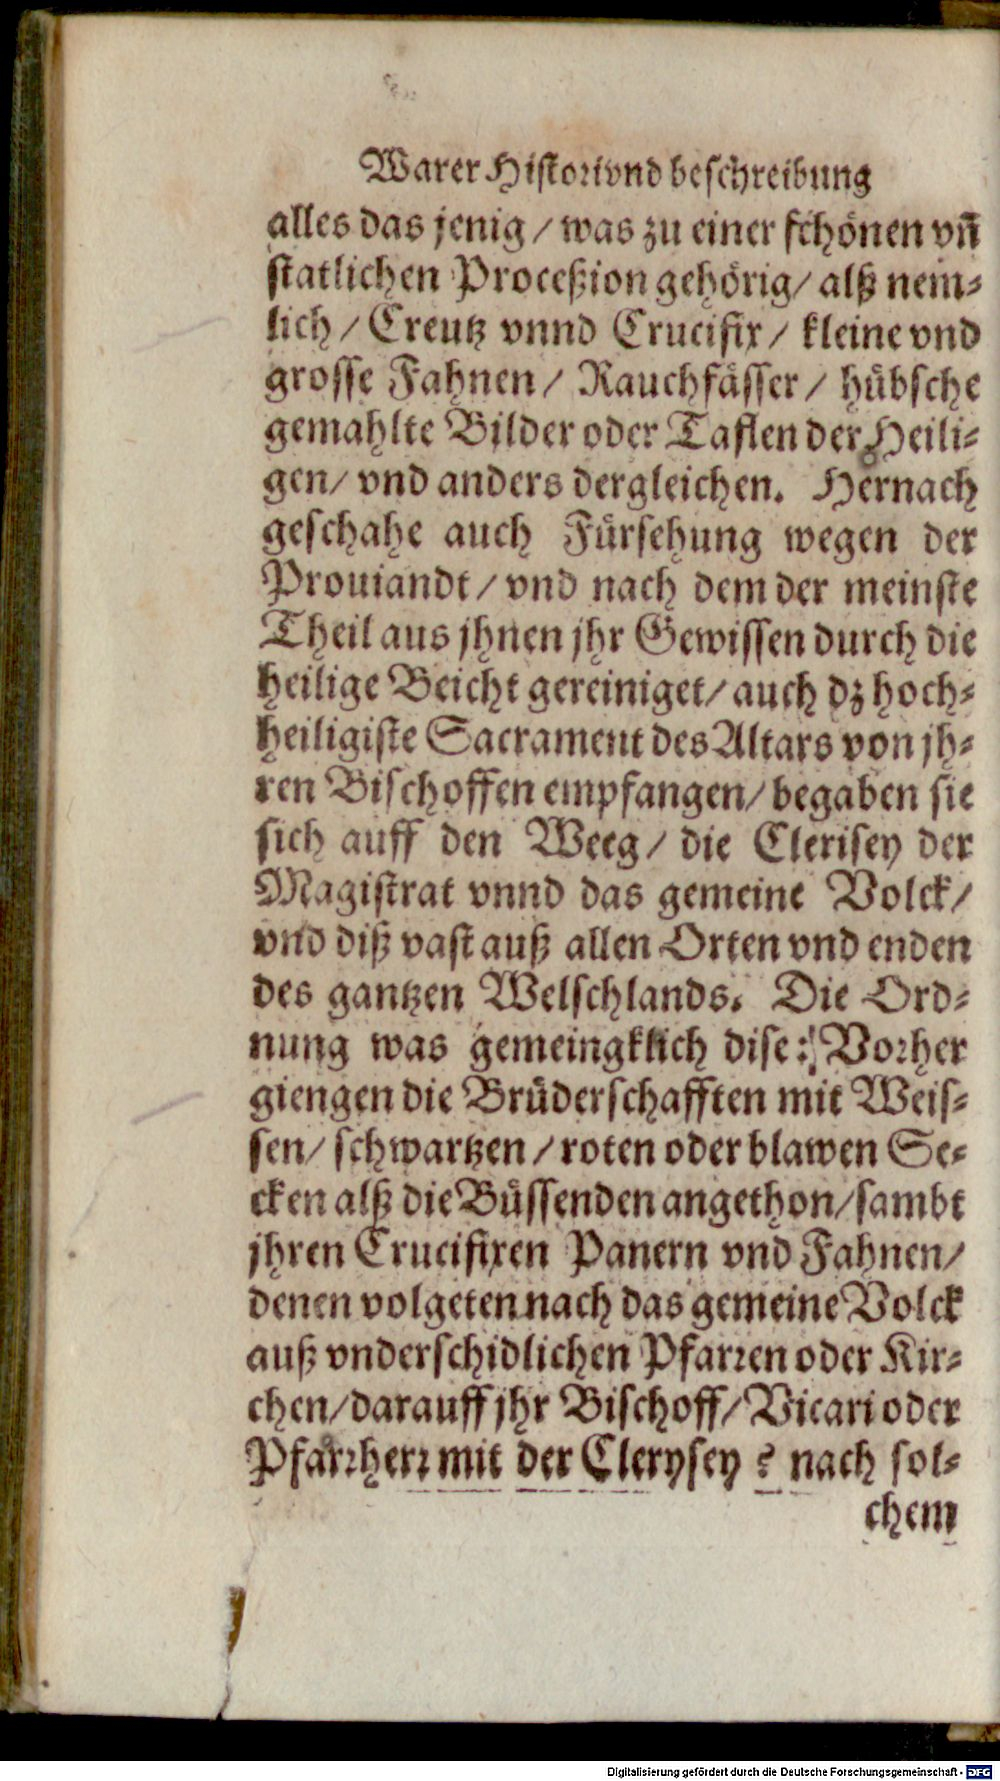 Warer Histori vnd beschreibung
alles das jenig / was zu einer schönen vñ
statlichen Proceßion gehörig / alß nem-
lich / Creutz vnnd Crucifix / kleine vnd
grosse Fahnen / Rauchfässer / hübsche
gemahlte Bilder oder Taflen der Heili-
gen / vnd anders dergleichen. Hernach
geschahe auch Fürsehung wegen der
Prouiandt / vnd nach dem der meinste
Theil aus jhnen jhr Gewissen durch die
heilige Beicht gereiniget / auch dz hoch-
heiligiste Sacrament des Altars von jh-
ren Bischoffen empfangen / begaben sie
sich auff den Weeg / die Clerisey der
Magistrat vnnd das gemeine Volck /
vnd diß vast auß allen Orten vnd enden
des gantzen Welschlands. Die Ord-
nung was gemeingklich dise: Vorher
giengen die Brüderschafften mit Weis-
sen / schwartzen / roten oder blawen Se-
cken alß die Büssenden angethon / sambt
jhren Crucifixen Panern vnd Fahnen /
denen volgeten nach das gemeine Volck
auß vnderschidlichen Pfarren oder Kir-
chen / darauff jhr Bischoff / Vicari oder
Pfarrherr mit der Clerysey ? nach sol-
chem
Digitalisierung gefördert durch die Deutsche Forschungsgemeinschaft - DFG